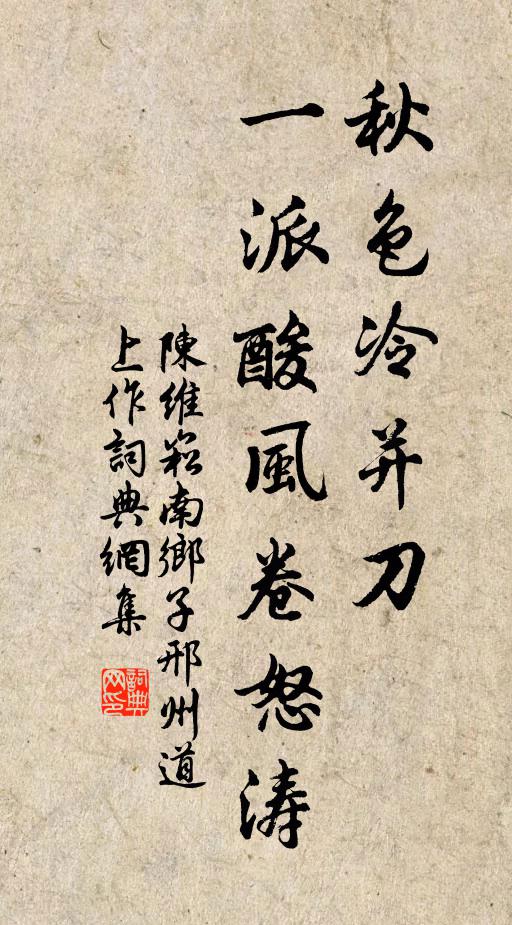 秋色冷并刀
一派酸風卷怒涛
陳維崧南鄉子邢州道
上作詞典網集
詞典
网印